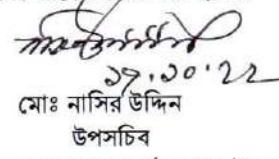 ১৭.১০.২২
মোঃ নাসির উদ্দিন
উপসচিব